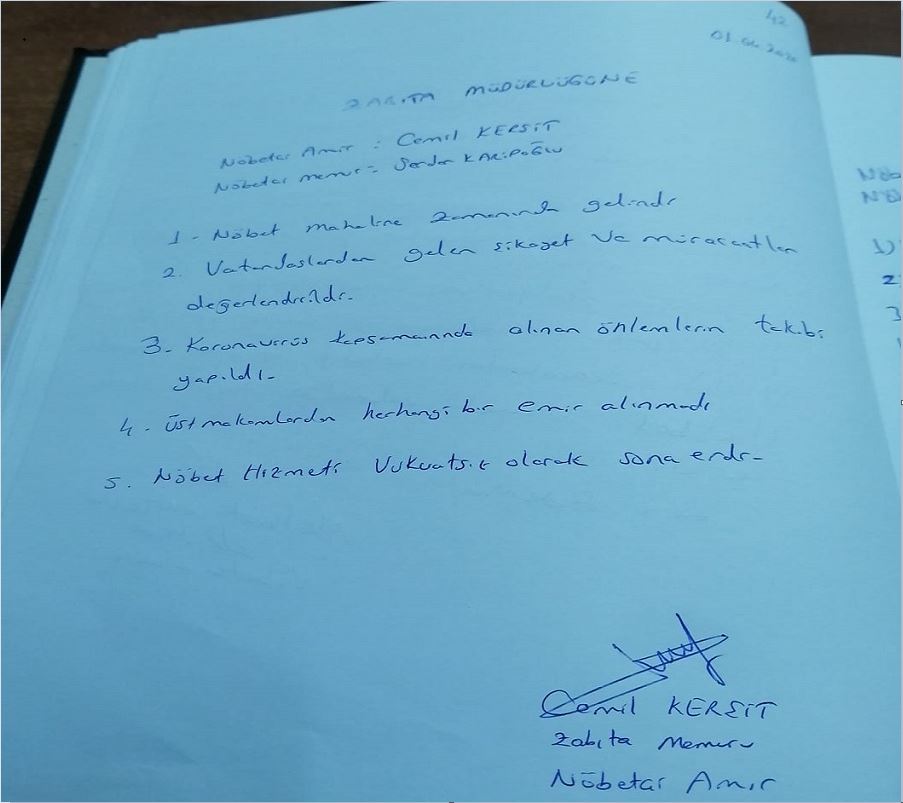 42
01.04.2020
ZABITA MÜDÜRLÜĞÜNE
Nöbetçi Amir : Cemil KERSİT
Nöbetçi memur : Serdar KARİPOĞLU
1 - Nöbet mahaline zamanında gelindi
2. Vatandaşlardan gelen şikayet ve müracaatler
değerlendirildi.
3. Koronavirüs kapsamında alınan önlemlerin takibi
yapıldı.
4. Üst makamlardan herhangi bir emir alınmadı
5. Nöbet Hizmeti Vukuatsız olarak sona erdi.
Cemil KERSİT
Zabıta Memuru
Nöbetçi Amir
Nöb
Nö
1)
2
3